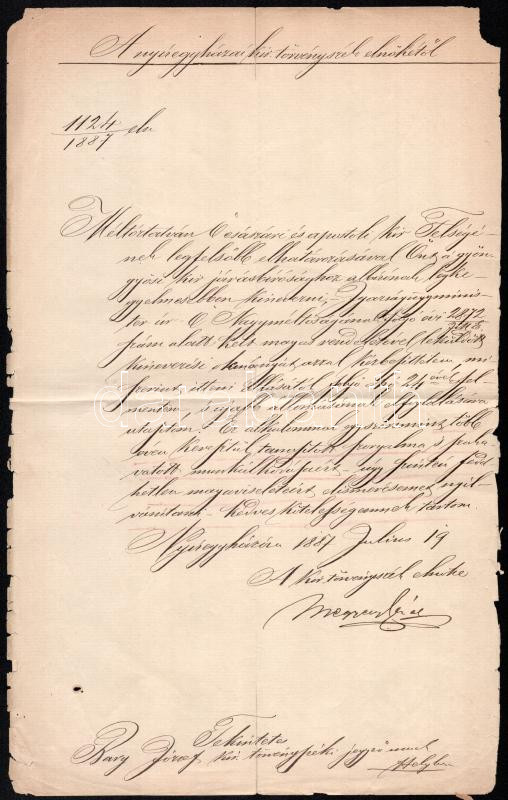 A nyíregyházai kir. törvényszék elnökétől
1124 eln
1887
Méltóztatván Ő császári és apostoli kir Felségé-
nek legfelsőbb elhatározásával Önt a gyön-
gyösi kir járásbírósághoz albírónak legke-
gyelmesebben kinevezni, Igazságügyminis-
tor úr Ő Nagyméltóságának folyó évi 2872
szám alatt kelt magas rendeletével leküldött
kinevezési okmányát azzal kézbesíttetem mi
szerint itteni állásától folyó hó 24 én fel-
mentem s újabb állomásának elfoglalására
utasítom. Ez alkalommal egyszersmint több
éven keresztül tanusított szorgalma s
vatott munkálkodásáért úgy szintén fedd-
hetlen magaviseletéért elismerésemet nyil-
vánítani kedves kötelességemnek tartom.
Nyíregyházán 1887 Julius 19
A kir törvényszék elnöke
Tekintetes
Bary József kir. törvényszéki jegyzőnek
Helyben